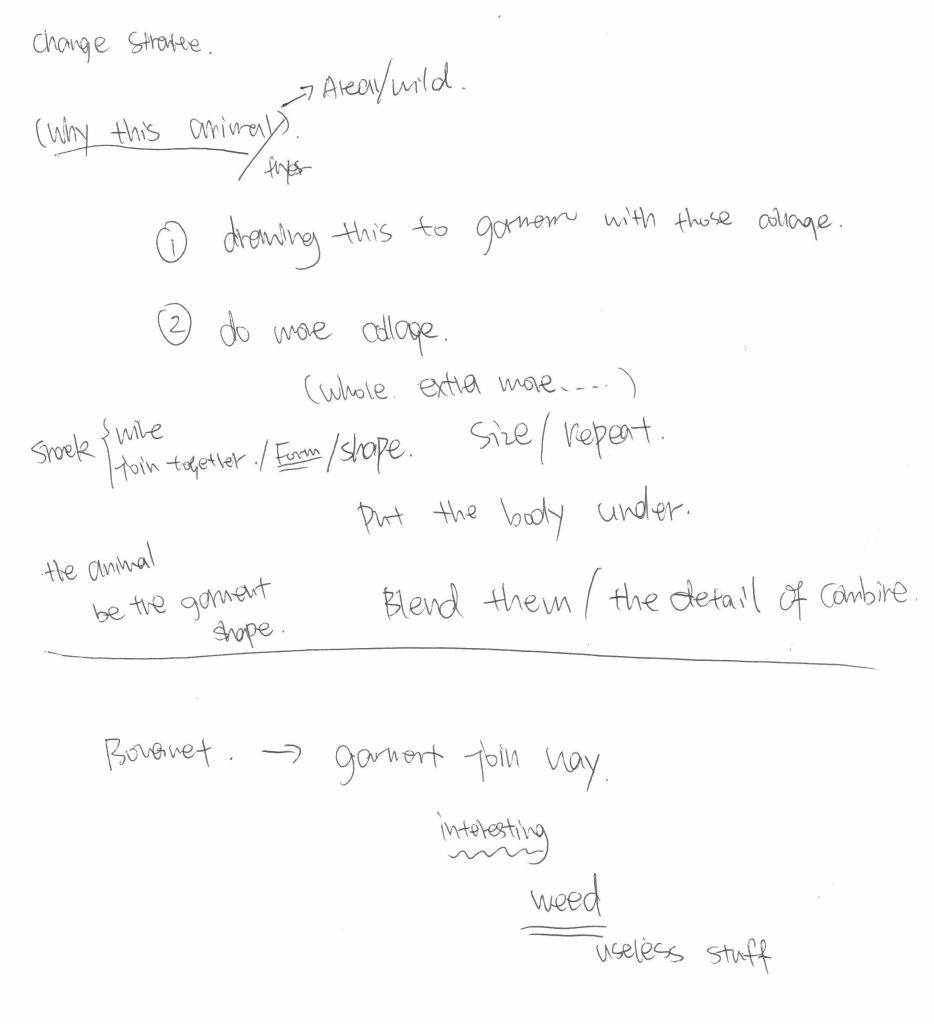 change
→ Area/wild.
(Why this animal).
① drawing this to with those collage.
② do more collage.
(whole. extra more.....)
wire
join together. / Form / shape.
Size / Repeat.
Put the body under.
the animal
be the garment
shape.
Blend them / the detail of combine.
→ garment join way.
interesting
weed
useless stuff